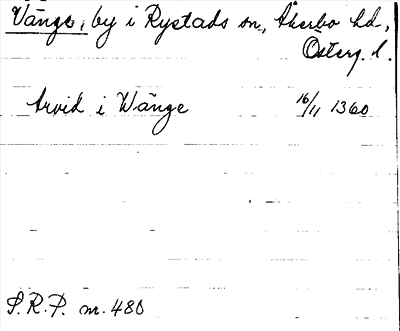 Vänge, by i Rystads sn, Åkerbo hd,
Österg. l.
Arvid i Wänge 16/11 1360
S.R.P. nr. 480